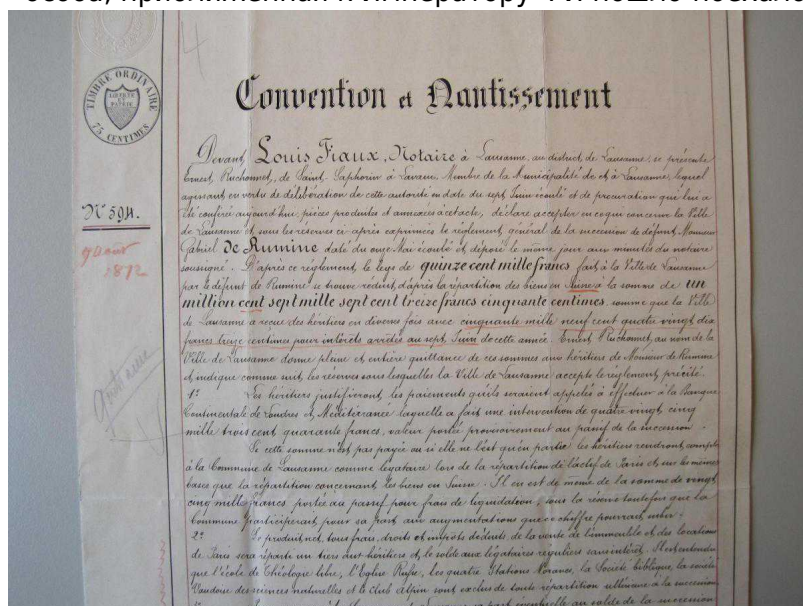 4
TIMBRE ORDINAIRE
LIBERTÉ ET PATRIE
75 CENTIMES
Convention et Nantissement
Devant Louis Fiaux, Notaire à Lausanne, au district de Lausanne, se présente
Ernest Ruchonnet, de Saint-Saphorin à Lavaux, Membre de la Municipalité de et à Lausanne, lequel
agissant en vertu de délibération de cette autorité en date du sept Juin écoulé et de procuration que lui a
été conférée aujourd'hui, pièces produites et annexées à cet acte, déclare accepter en ce qui concerne la Ville
de Lausanne et sous les réserves ci-après exprimées le règlement général de la succession de défunt Monsieur
Gabriel de Rumine daté du onze Mai écoulé et déposé le même jour aux minutes du notaire
soussigné. D'après ce règlement, le legs de quinze cent mille francs fait à la Ville de Lausanne
par le défunt de Rumine se trouve réduit, d'après la répartition des biens en Suisse à la somme de un
million cent sept mille sept cent treize francs cinquante centimes, somme que la Ville
de Lausanne a reçue des héritiers en diverses fois avec cinquante mille neuf cent quatre vingt dix
francs treize centimes pour intérêts arrêtés au sept Juin de cette année. Ernest Ruchonnet, au nom de la
Ville de Lausanne donne pleine et entière quittance de ces sommes aux héritiers de Monsieur de Rumine
et indique comme suit les réserves sous lesquelles la Ville de Lausanne accepte le règlement précité.
1° Les héritiers justifieront les paiements qu'ils seraient appelés à effectuer à la Banque
Continentale de Londres et Méditerranée laquelle a fait une intervention de quatre vingt cinq
mille trois cent quarante francs, valeur portée provisoirement au passif de la succession.
Si cette somme n'est pas payée ou si elle ne l'est qu'en partie les héritiers rendront compte
à la Commune de Lausanne comme légataire lors de la répartition de l'actif de Paris et sur les mêmes
bases que la répartition concernant les biens en Suisse. Il en est de même de la somme de vingt
cinq mille francs portée au passif pour frais de liquidation, sous la réserve toutefois que la
Commune participerait pour sa part aux augmentations que ce chiffre pourrait subir.
2° Le produit net, tous frais, droits et impôts déduits, de la vente de l'immeuble et des locations
de Paris sera réparti un tiers aux héritiers et le solde aux légataires réguliers sans intérêt. Il est entendu
que l'école de théologie libre, l'Eglise Russe, les quatre Stations, la Société biblique, la société
Vaudoise des sciences naturelles et le club Alpin sont exclus de toute répartition ultérieure à la succession
de Lausanne sa part éventuelle au solde de la succession
N° 594.
9 Août
1872